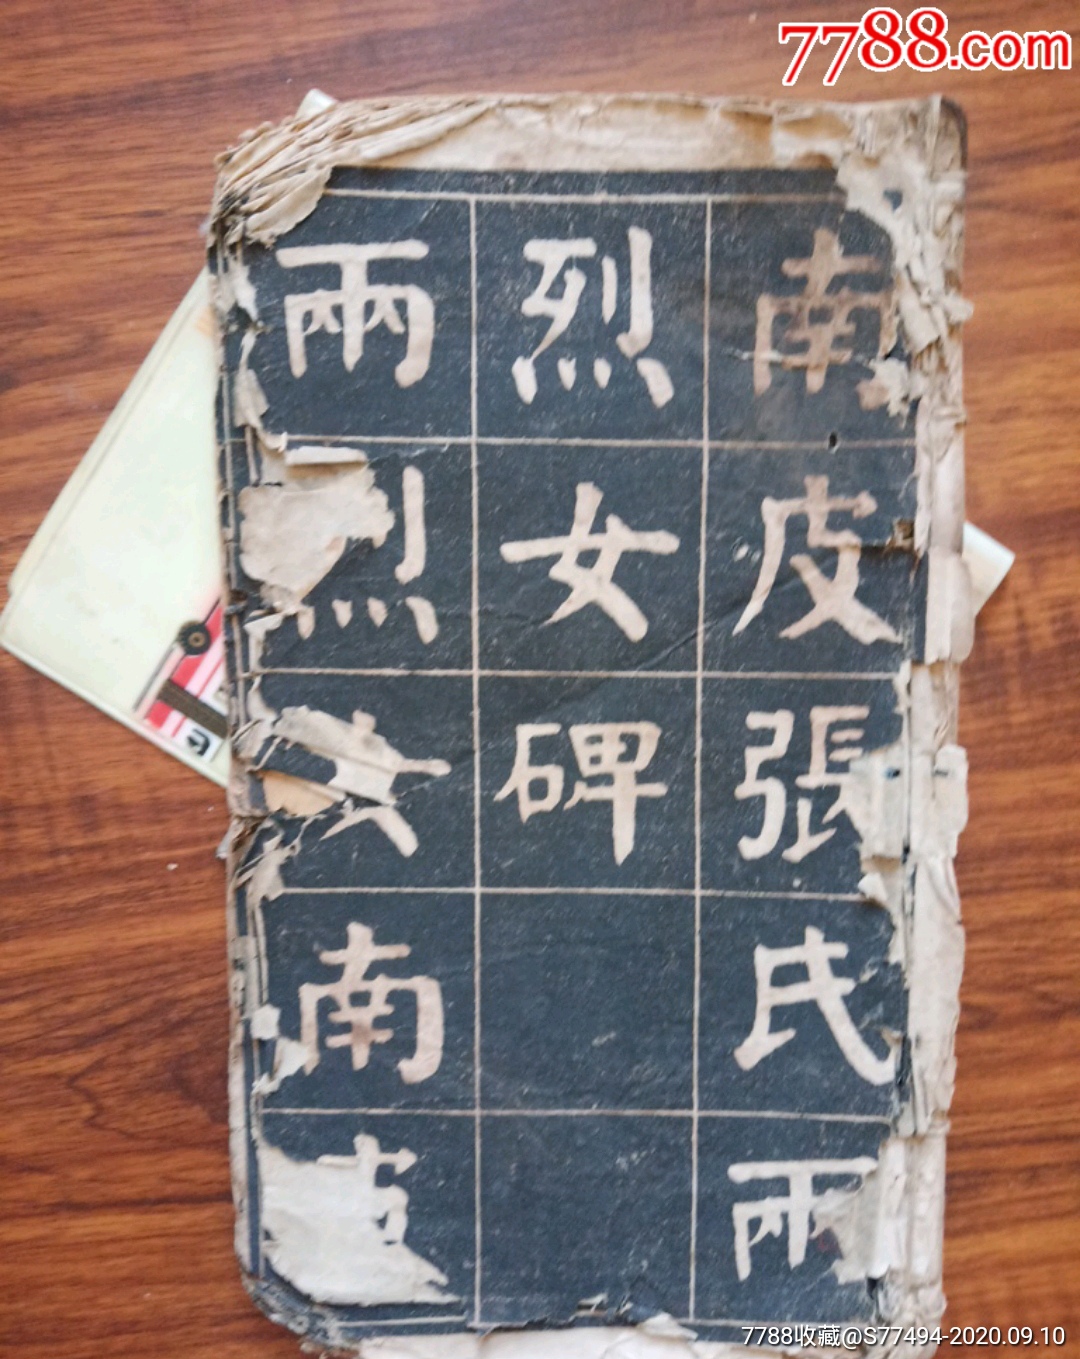 7788.com
南皮張氏兩
烈女碑
兩烈女南皮
7788收藏@S77494-2020.09.10